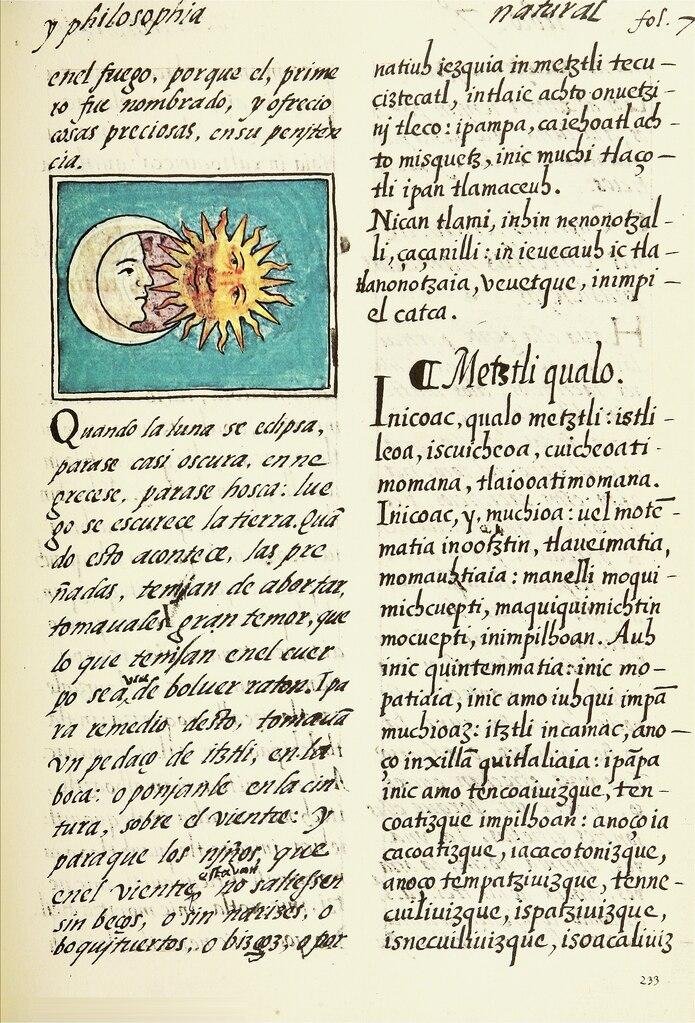 y philosophia
natural
fol. 7
enel fuego, porque el, prime
ro fue nombrado, y ofrecio
cosas preciosas, ensu peniten
cia.
Quando la luna se eclipsa,
parase casi oscura, enne
grecese, parase hosca: lue
go se escurece la tierra. Quã
do esto acontece, las pre
ñadas, temjan de abortar,
tomauales gran temor, que
lo que temjan enel cuer
po se avia, de boluer raton. I pa
ra remedio desto, tomauã
vn pedaço de itztli, en la
boca: o ponjanle en la cin
tura, sobre el vientre: y
paraque los niños, que
enel vientre estavan, no saliessen
sin beços, o sin narizes, o
boquituertos, o bizcos, o por
natiuh iezquia in metztli tecu—
ciztecatl, intlaic achto onuetzi—
nj tleco: ipampa, ca iehoatl ach—
to misquetz, inic muchi tlaço—
tli ipan tlamaceuh.
Nican tlami, inhin nenonotzal—
li, çaçanilli: in ieuecauh ic tla—
tlanonotzaia, veuetque, inimpi—
el catca.
¶ Metztli qualo.
Inicoac, qualo metztli: istli—
leoa, iscuicheoa, cuicheoati—
momana, tlaiooatimomana.
Inicoac, y, muchioa: uel motē—
matia inootztin, tlaueimatia,
momauhtiaia: manelli moqui—
michcuepti, maquiquimichtin
mocuepti, inimpilhoan. Auh
inic quintemmatia: inic mo—
patiaia, inic amo iuhqui impã
muchioaz: itztli incamac, ano—
ço inxillã quitlaliaia: ipãpa
inic amo tencoaiuizque, ten—
coatizque impilhoan: anoço ia
cacoatizque, iacacotonizque,
anoço tempatziuizque, tenne—
cuiliuizque, ispatziuizque,
isnecuiliuizque, isoacaliuiz
233